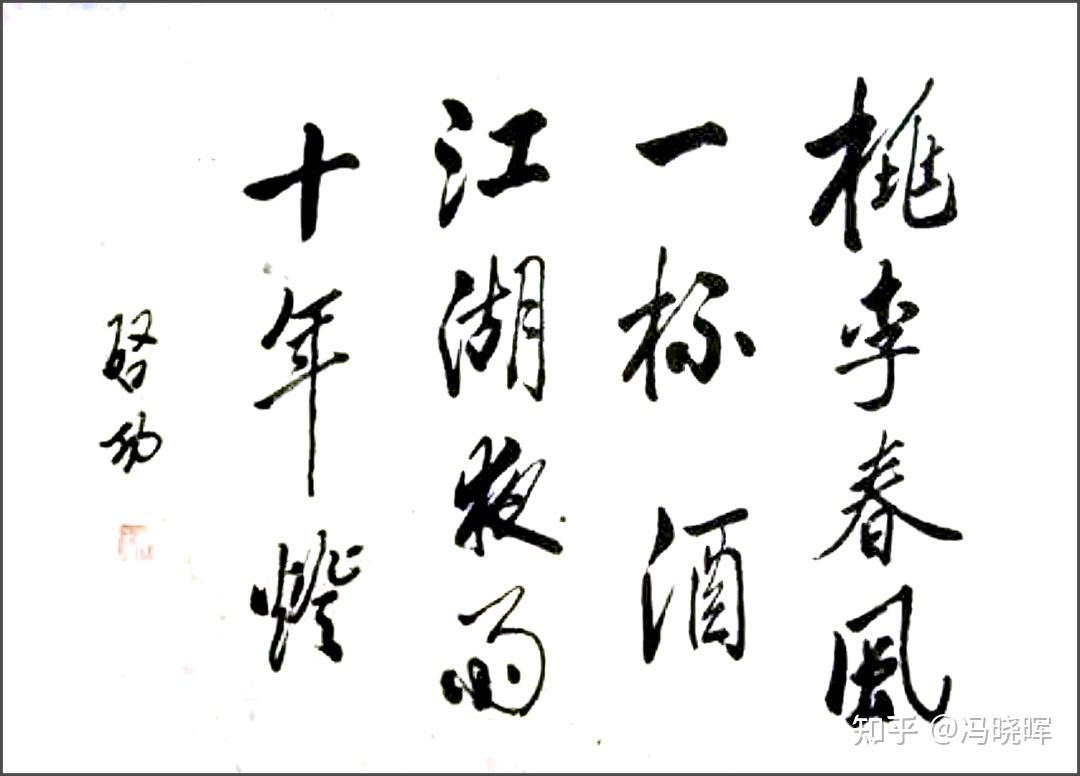 桃李春風
一杯酒
江湖夜雨
十年燈
啓功
知乎 @冯晓晖